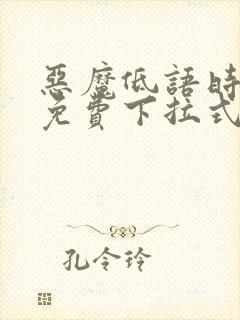 惡魔低語時
免費下拉式
孔令玲